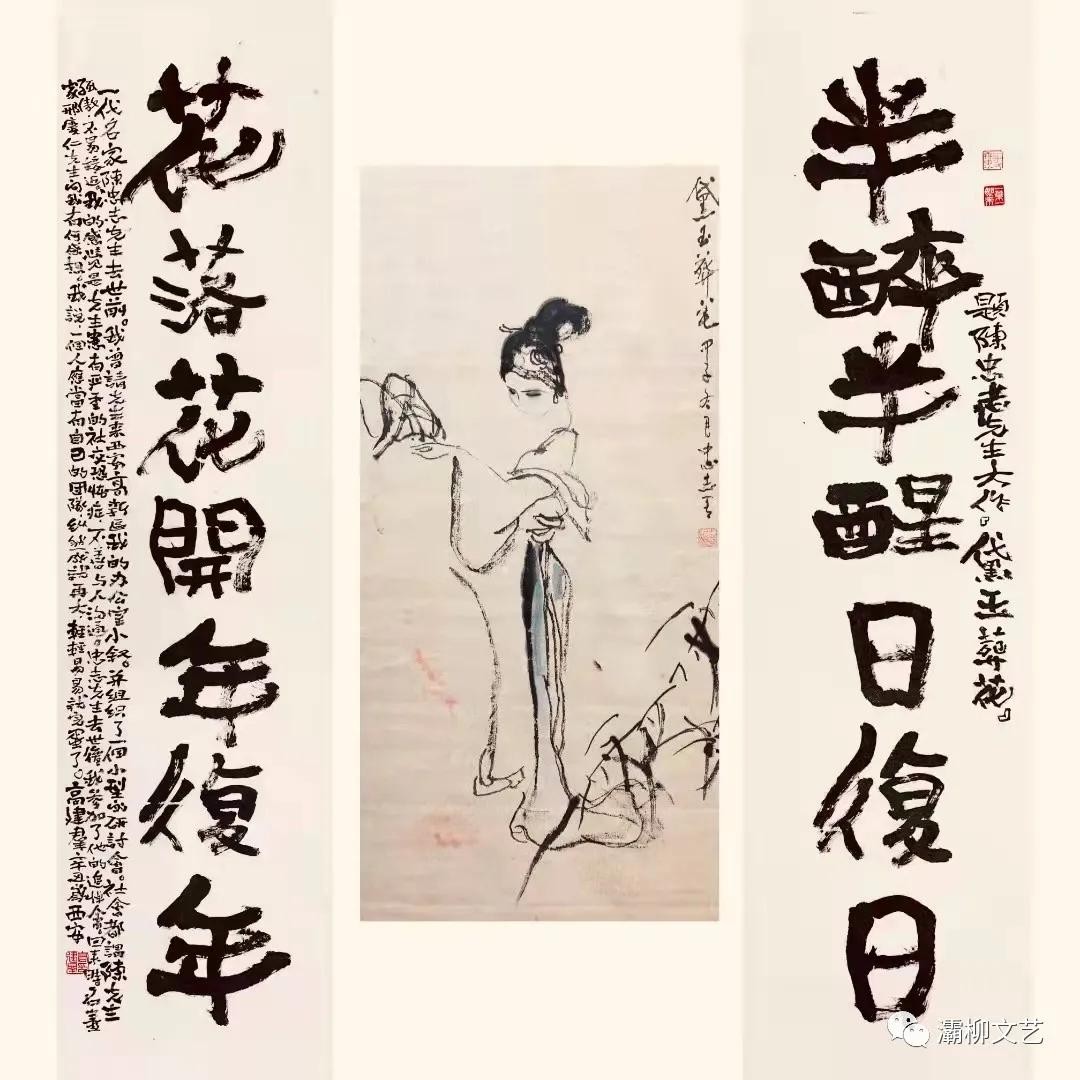 題陳忠志先生大作『黛玉葬花』
半醉半醒日復日
黛玉葬花 甲子冬月忠志写
花落花開年復年
一代名家陳忠志先生去世前。我曾請先生来西安高新區我的办公室小叙。并組织了一個小型的研討會。社會都謂陳先生
孤傲，不易接近。我的感覺是先生患有严重的社交恐惧症，不善与人沟通。忠志先生去世後，我参加了他的追悼會。回来時
家邢慶仁先生问我有何感想。我説，一個人應當有自己的團隊，纵然成就再大，輕輕易易就完蛋了。高建群辛丑歲西安
灞柳文艺